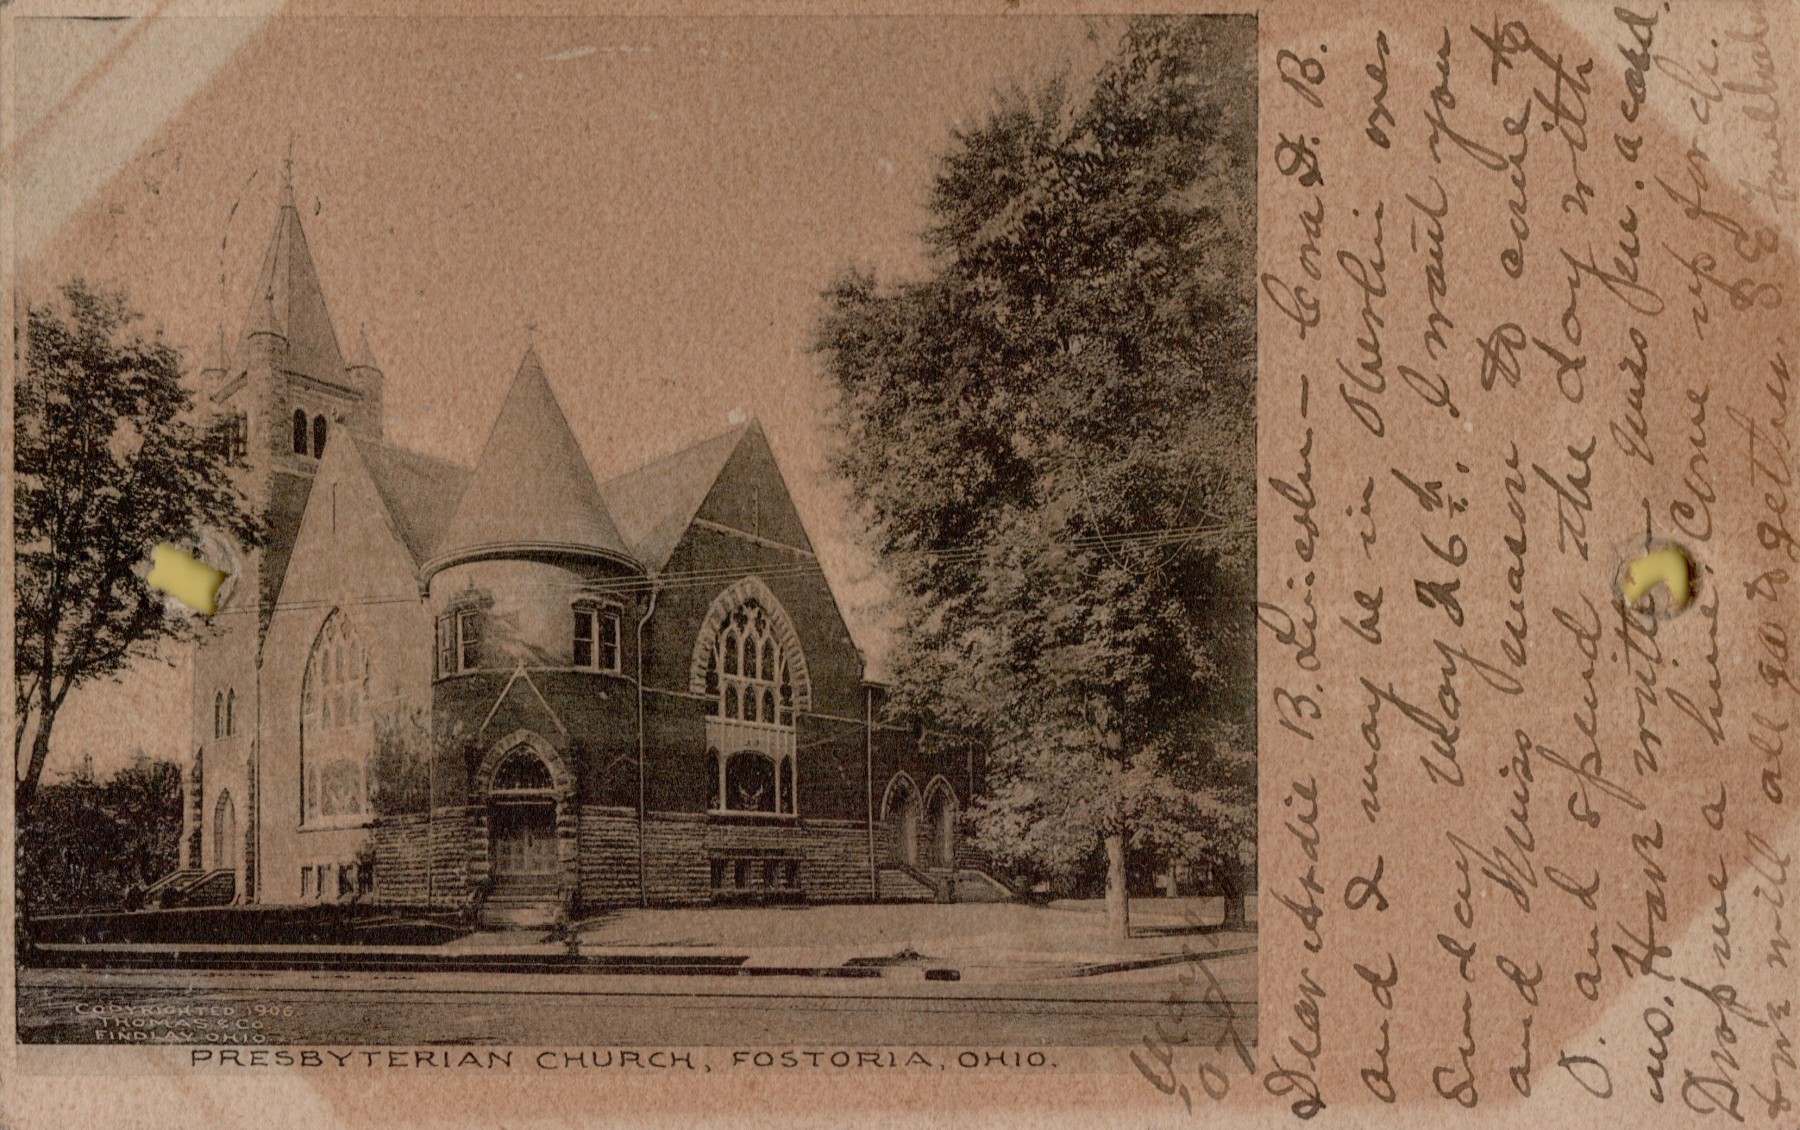 COPYRIGHTED 1906
THOMAS & CO
FINDLAY OHIO
PRESBYTERIAN CHURCH, FOSTORIA, OHIO.
May
07
Dear B. Lincoln — Cora D. B.
and I may be in over
Sunday May 26th. I want you
and Miss to come to
O. and spend the day with
us. Have written a card.
Drop me a line. Come up for ch.
& we will all go together.